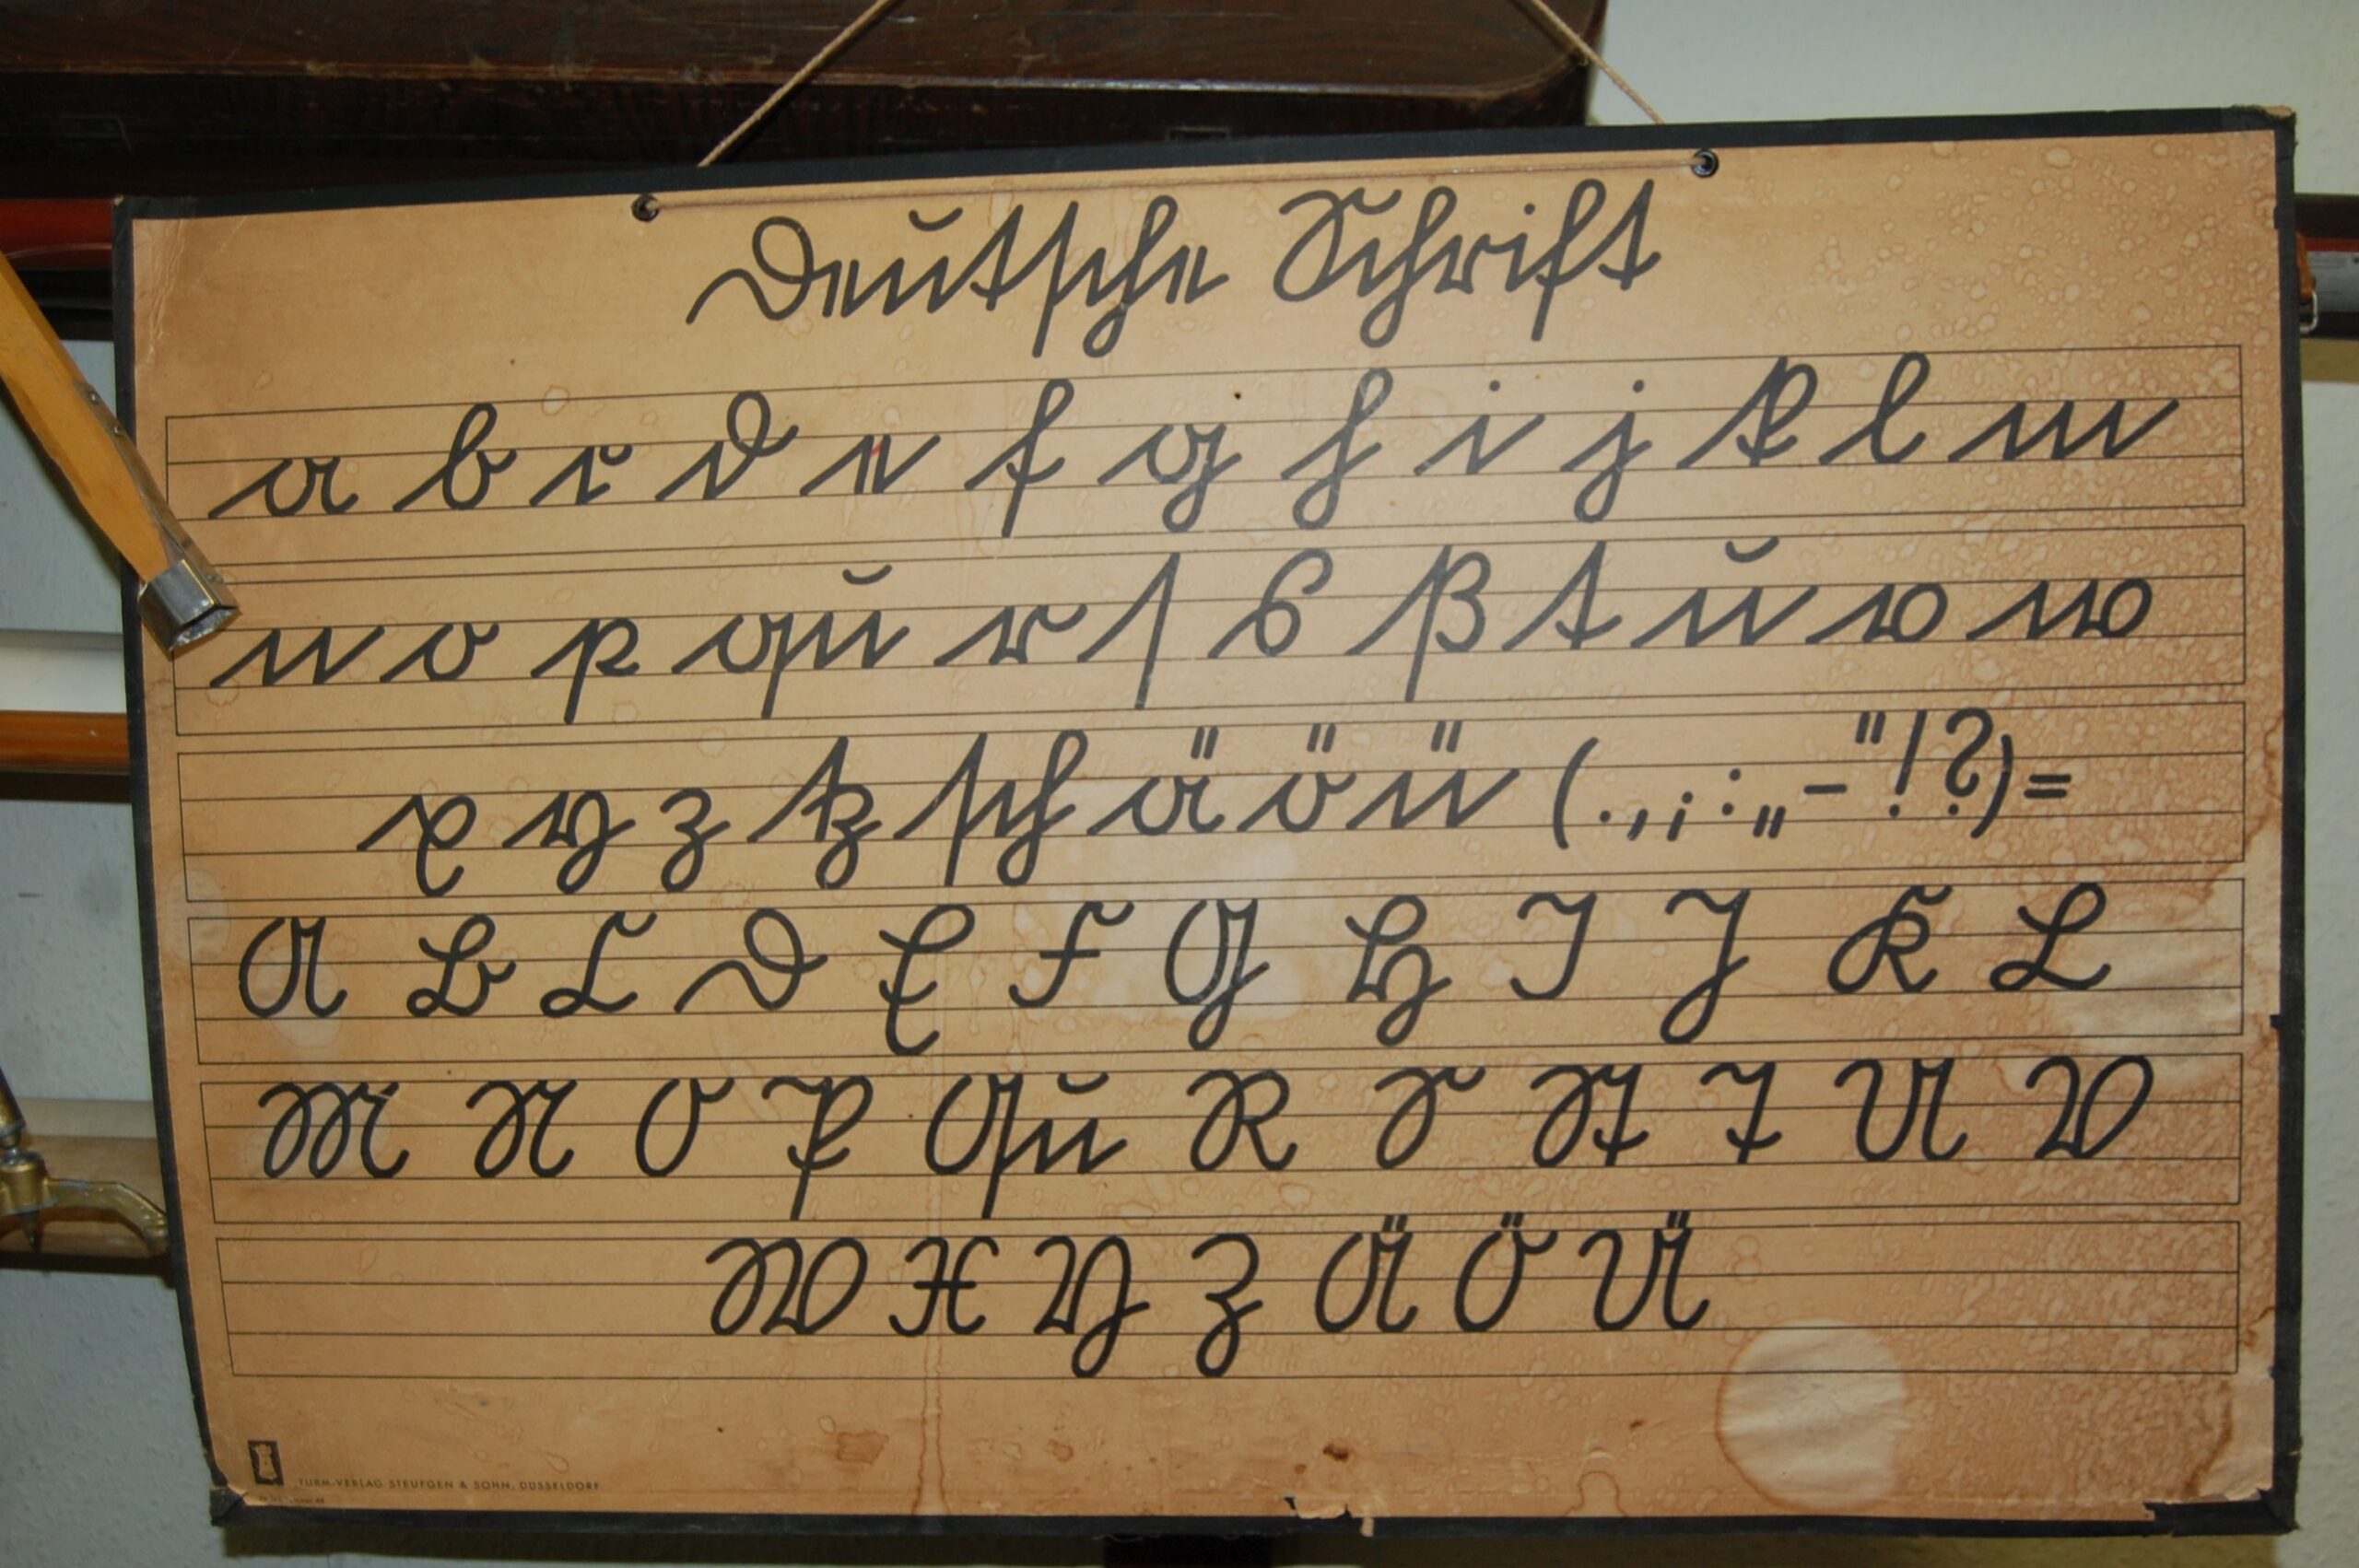 Deutsche Schrift
a b c d e f g h i j k l m
n o p qu r ſ s ß t u v w
x y z tz ſch ä ö ü (.,;:„-"!?)=
A B C D E F G H I J K L
M N O P Qu R S St T U V
W X Y Z Ä Ö Ü
TURM-VERLAG STEUFGEN & SOHN, DÜSSELDORF